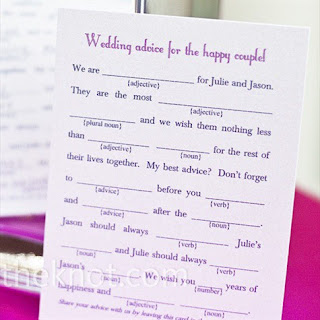 Wedding advice for the happy couple!
We are ____________ for Julie and Jason.
{adjective}
They are the most ____________
{adjective}
____________ and we wish them nothing less
{plural noun}
than ____________ ____________ for the rest of
{adjective} {noun}
their lives together. My best advice? Don't forget
to ____________ before you ____________
{advice} {verb}
and ____________ after the ____________.
{advice} {noun}
Jason should always ____________ Julie's
{verb}
____________ and Julie should always ____________
{noun} {verb}
Jason's ____________. We wish you ____________ years of
{noun} {number}
happiness and ____________
{adjective}
Share your advice with us by leaving this card in the
theknot.com